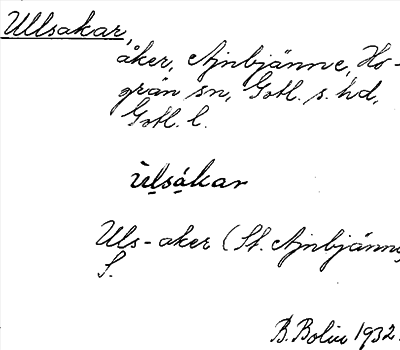 Ullsakar,
åker, Ajnbjänne, Ho-
grän sn, Gotl. s. hd,
Gotl. l.
ulsákar
Uls-aker (St. Ajnbjänne,
S.
B. Bolin 1932.